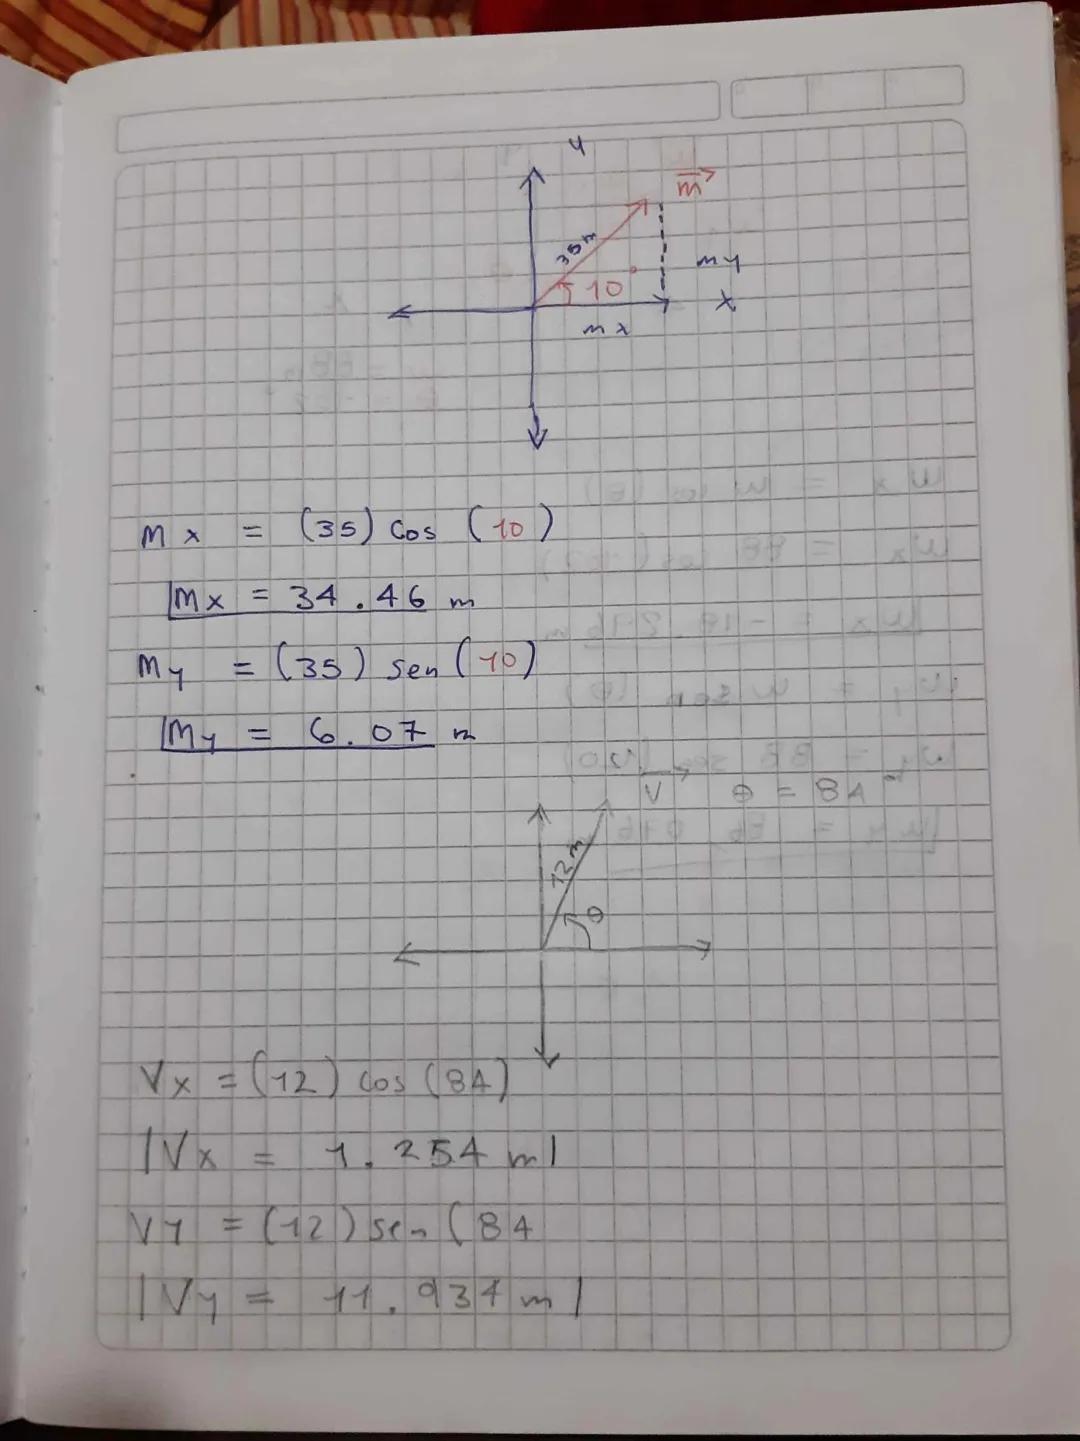 y
m
35m
my
10°
x
mx
Mx = (35) cos (10)
Mx = 34.46 m
My = (35) sen (10)
My = 6.07 m
V θ = 84°
12m
θ
Vx = (12) cos (84)
|Vx = 1.254 m|
Vy = (12) sen (84
|Vy = 11.934 m|